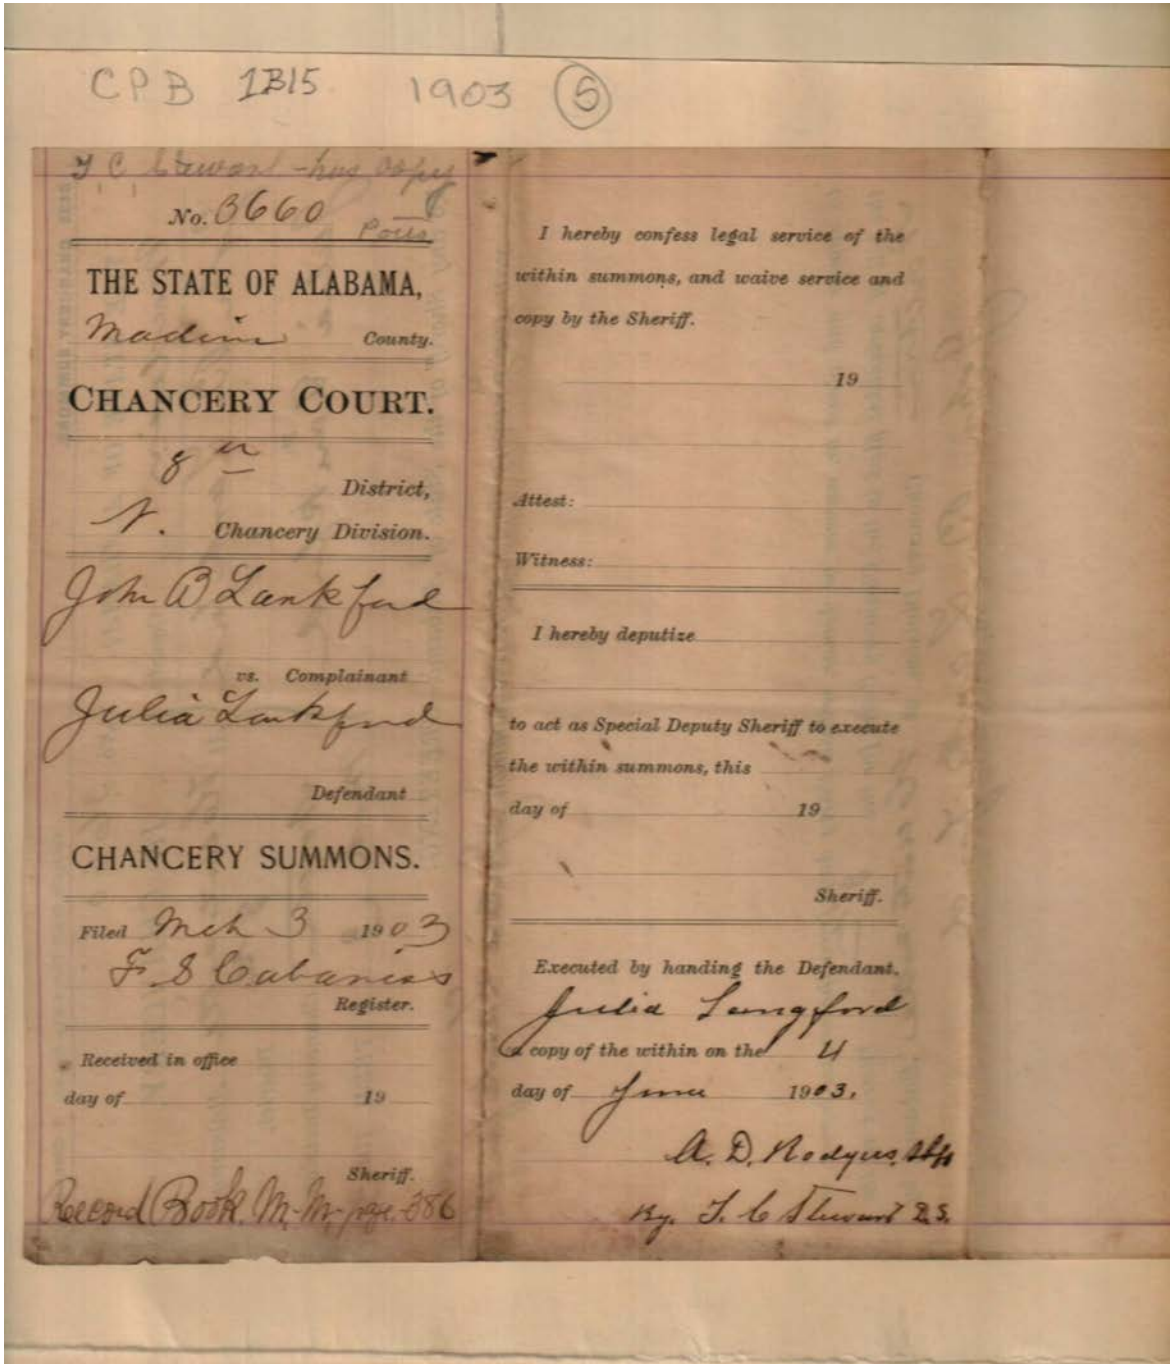 CPB 1B15 1903 5
T C Stewart - has copy
No. 3660
THE STATE OF ALABAMA,
Madison County.
CHANCERY COURT.
8th
District,
N. Chancery Division.
John B Lankford
vs. Complainant
Julia Lankford
Defendant
CHANCERY SUMMONS.
Filed Mch 3 1903
F. S Cabaniss
Register.
Received in office
day of 19
Sheriff.
Record Book. M.M. page. 386
I hereby confess legal service of the
within summons, and waive service and
copy by the Sheriff.
19
Attest:
Witness:
I hereby deputize
to act as Special Deputy Sheriff to execute
the within summons, this
day of 19
Sheriff.
Executed by handing the Defendant,
Julia Langford
a copy of the within on the 4
day of June 1903.
A. D. Rodgers, Shff
By. T. C Stewart D.S.